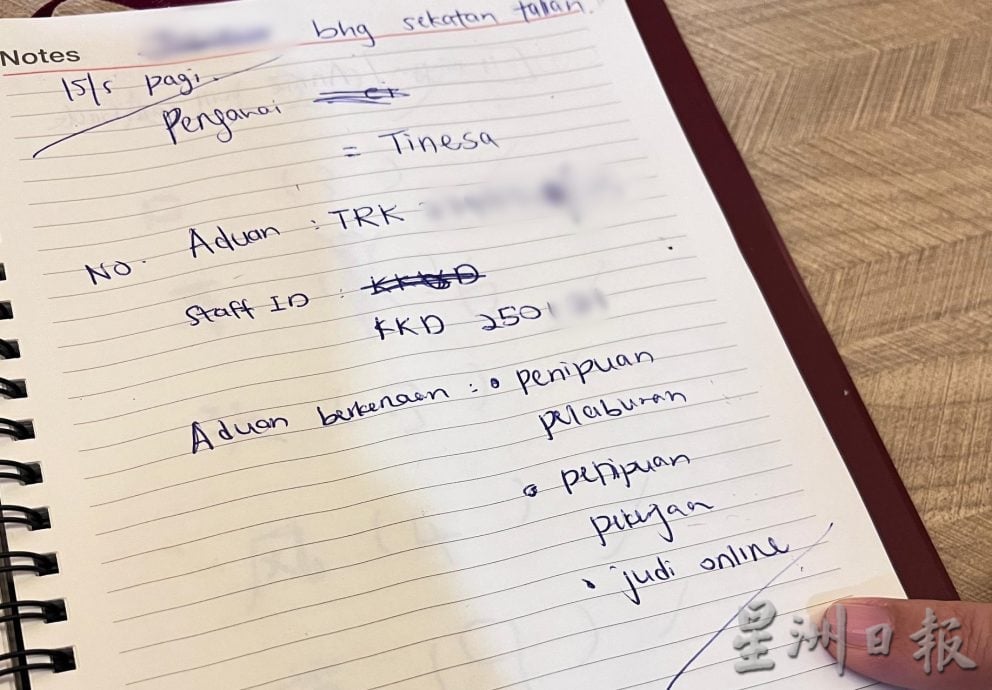 Notes
bhg sekatan talian.
15/5 pagi.
Pengawai
= Tinesa
No. Aduan : TRK
Staff ID : KKWD
KKD 250
Aduan berkenaan : • penipuan
pelaburan
• penipuan
pekerjan
• judi online
星洲日報